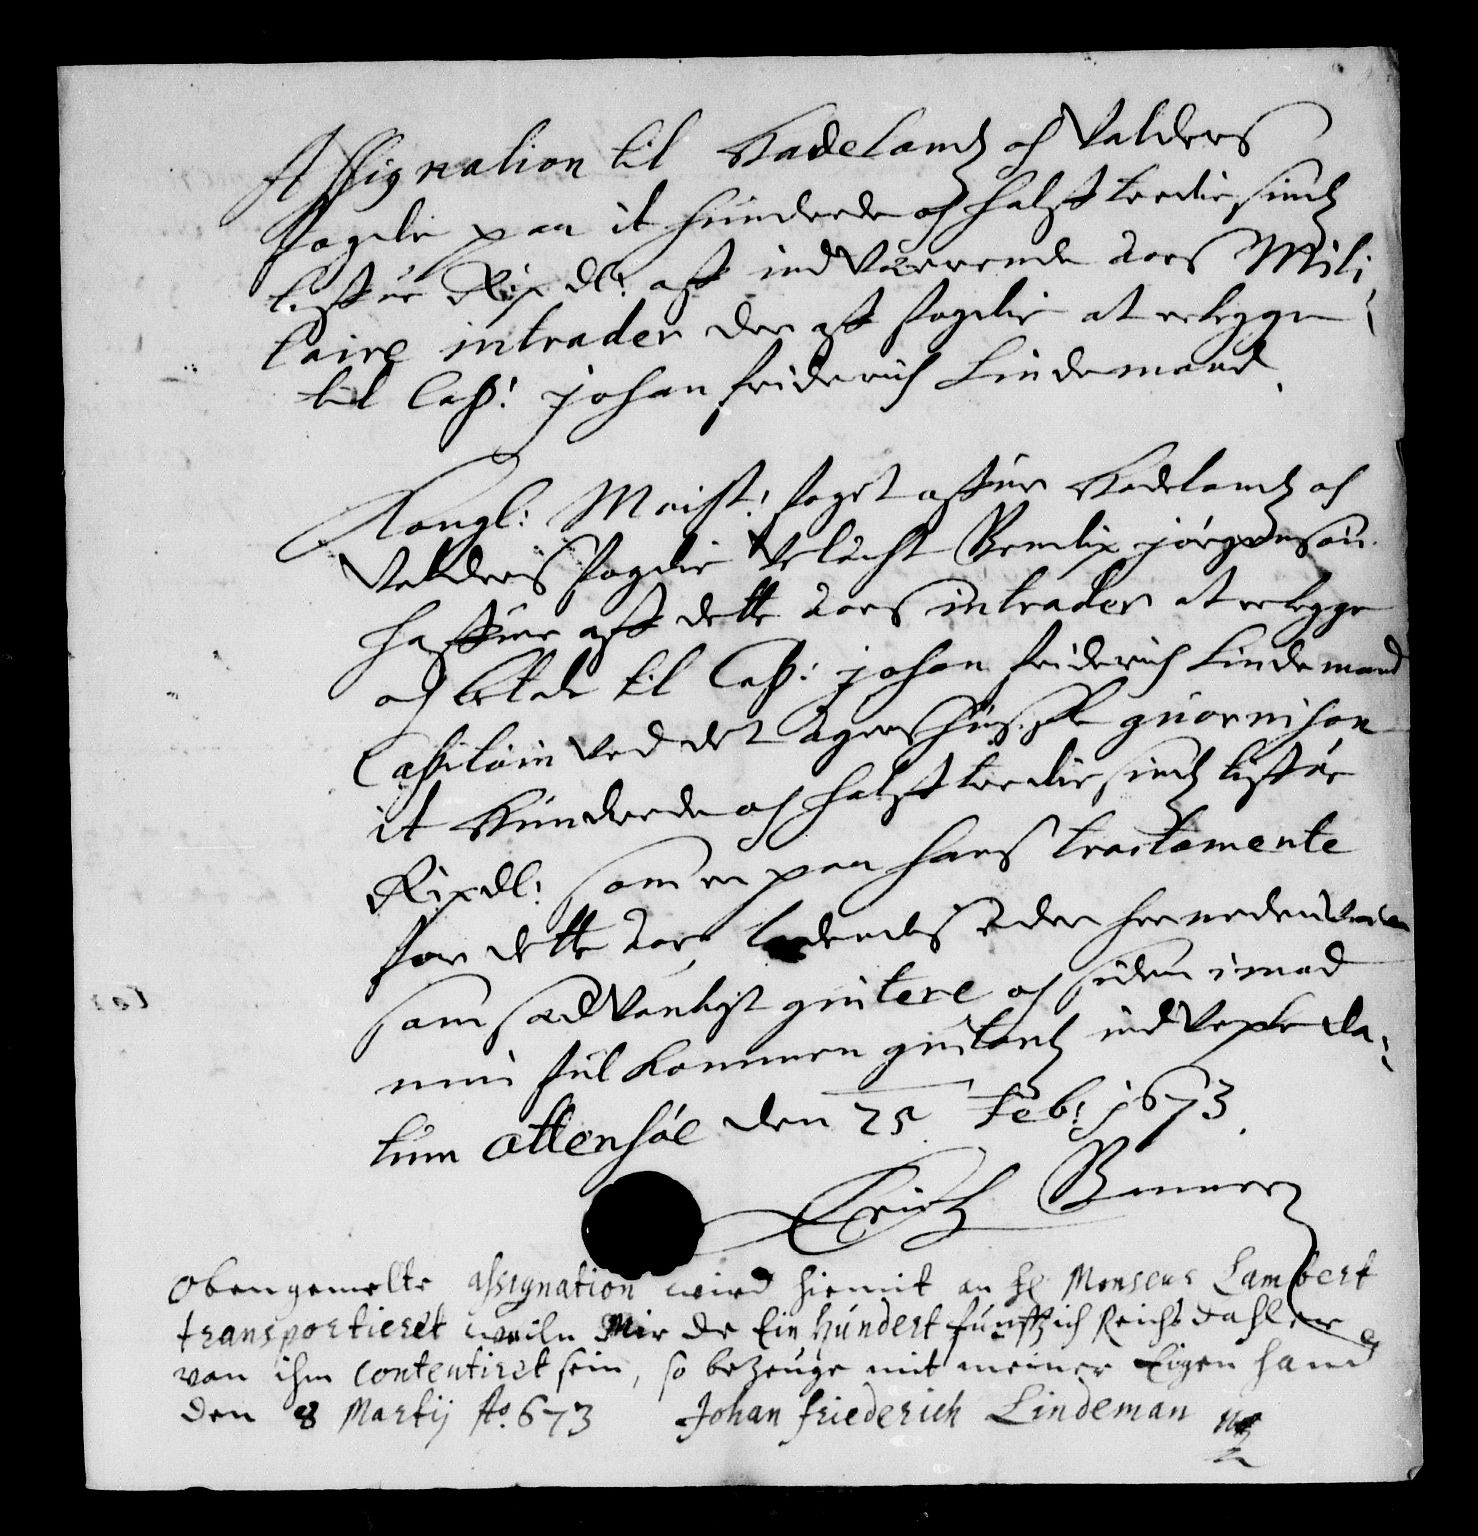 Assignation til Hadelandz och Valders
fogderi paa it hunderde och halftrediesindz
tiffue Rixdl: aff indverrende Aars Mili,
taire intrader der aff fogderi at erlegge
til Capt: Johan friderich Lindemand
Kongl: Maist: foget offuer Hadelandz och
Valders fogderi Velacht Bendix Jørgensøn
haffuer aff dette Aars intrader at erlegge
och betale til Capt: Johan friderich Lindemand
Capitain ved det Agershusiske guarnison
it hunderde och halftrediesindz tiffue
Rixdl: som er paa hans tractamente
for dette Aar, der her neden under
som sædvanligt quitere och siden imod
min fuldkommen quitantz indVexle Da,
tum Ottensøe den 25 Feb: 1673
Erich Banner
Obengemelte assignation wird hiemit an H Monseur Lambert
transportieret weiln Mir die Ein hundert funffzich Reichsdahler
von ihm contentiret sein, so bezeuge mit meiner Eigen hand
den 8 Martij Ao 673 Johan friederich Lindeman